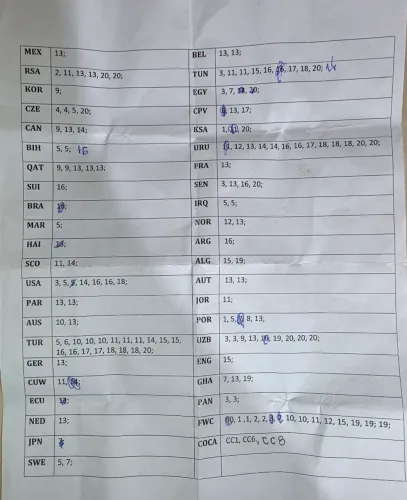 MEX 13;
RSA 2, 11, 13, 13, 20, 20;
KOR 9;
CZE 4, 4, 5, 20;
CAN 9, 13, 14;
BIH 5, 5; 16
QAT 9, 9, 13, 13,13;
SUI 16;
BRA
MAR 5;
HAI
SCO 11, 14;
USA 3, 5, 14, 16, 16, 18;
PAR 13, 13;
AUS 10, 13;
TUR 5, 6, 10, 10, 10, 11, 11, 11, 14, 15, 15,
16, 16, 17, 17, 18, 18, 18, 20;
GER 13;
CUW 11,
ECU
NED 13;
JPN
SWE 5, 7;
BEL 13, 13;
TUN 3, 11, 11, 15, 16, 17, 18, 20; 14
EGY 3, 7,
CPV 13, 17;
KSA 1, 20;
URU 12, 13, 14, 14, 16, 16, 17, 18, 18, 18, 20, 20;
FRA 13;
SEN 3, 13, 16, 20;
IRQ 5, 5;
NOR 12, 13;
ARG 16;
ALG 15, 19;
AUT 13, 13;
JOR 11;
POR 1, 5, 8, 13;
UZB 3, 3, 9, 13, 19, 20, 20, 20;
ENG 15;
GHA 7, 13, 19;
PAN 3, 3;
FWC 1, 1, 2, 2, 10, 10, 11, 12, 15, 19, 19; 19;
COCA CC1, CC6, CC8